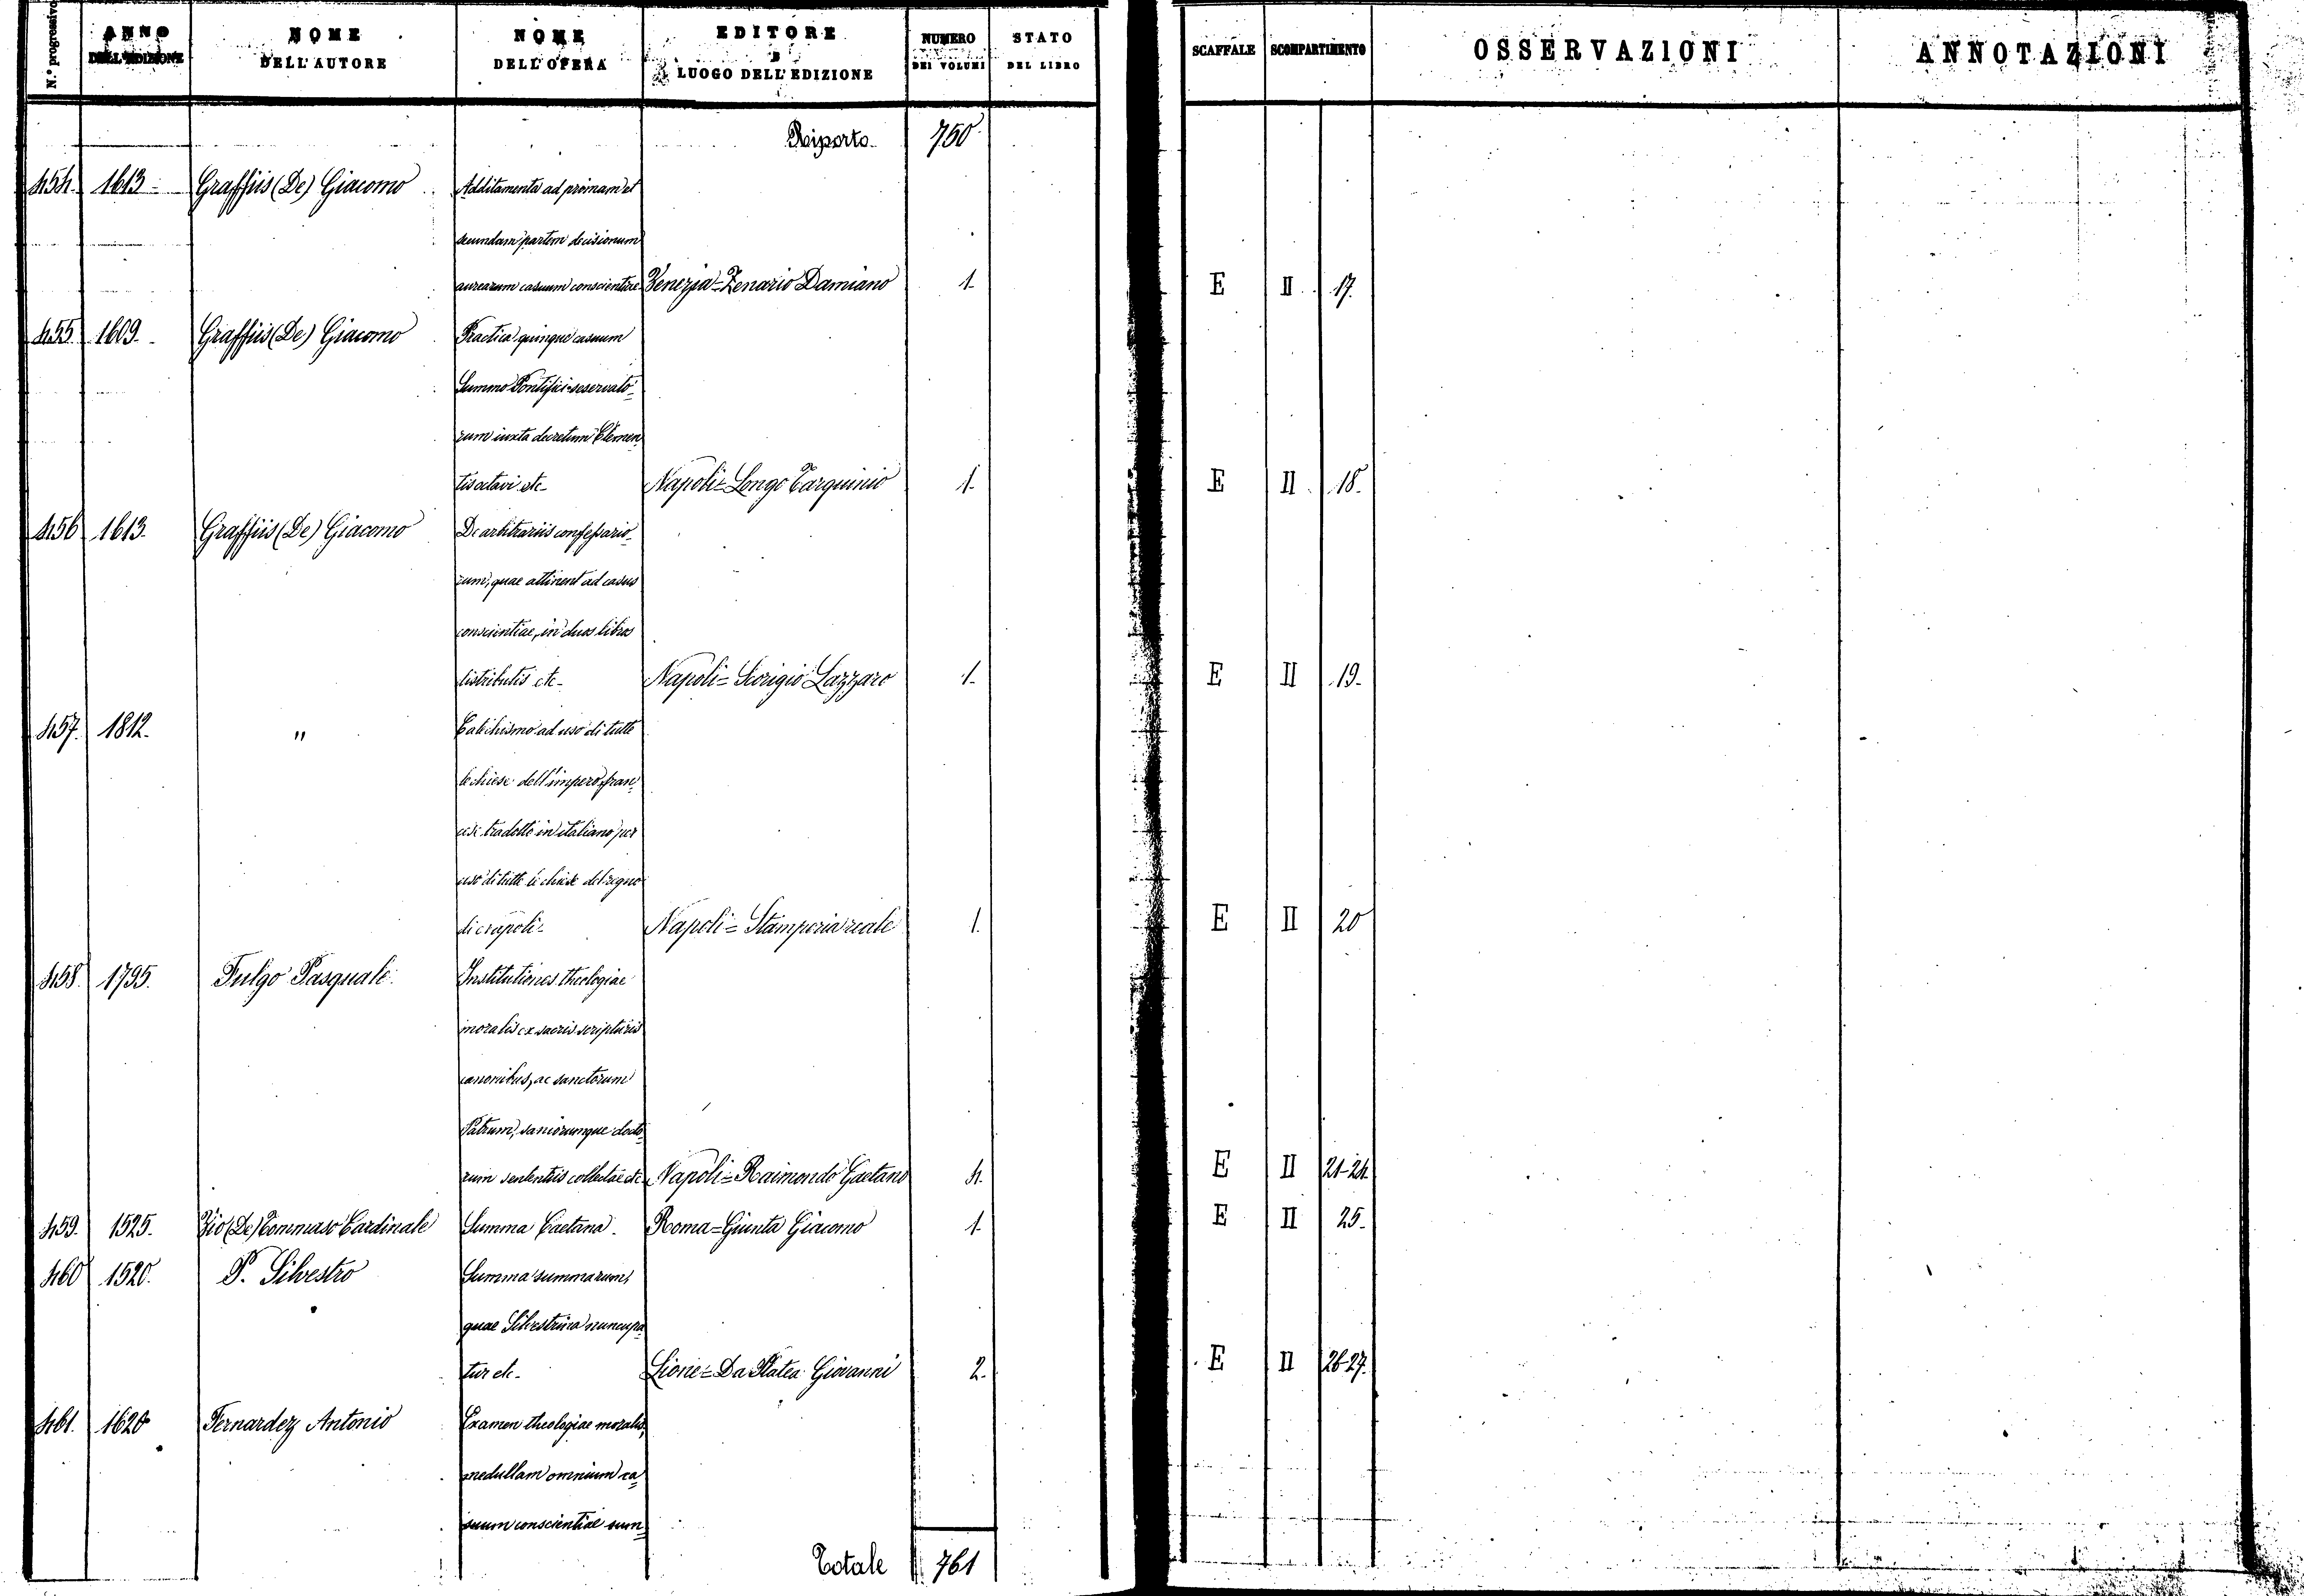 N.° progressivo ANNO DELL'EDIZIONE NOME DELL'AUTORE NOME DELL'OPERA EDITORE E LUOGO DELL'EDIZIONE NUMERO DEI VOLUMI STATO DEL LIBRO SCAFFALE SCOMPARTIMENTO OSSERVAZIONI ANNOTAZIONI
Riporto 750
454. 1613 - Graffiis (De) Giacomo Additamenta ad primam et
secundam partem decisionum
aurearum casuum conscientiae Venezia = Zenario Damiano 1. E II 17.
455. 1609. Graffiis (De) Giacomo Practica quinque casuum
Summo Pontifici reservato-
rum iuxta decretum Clemen-
tis octavi etc. Napoli = Longo Tarquinio 1. E II 18.
456 1613. Graffiis (De) Giacomo De arbitrariis confessario-
rum, quae attinent ad casus
conscientiae, in duos libros
distributis etc. Napoli = Scorigio Lazzaro 1. E II 19.
457. 1812. " Catechismo ad uso di tutte
le chiese dell'impero fran-
cese tradotto in italiano per
uso di tutte le chiese del regno
di Napoli. Napoli = Stamperia reale 1. E II 20
458. 1795. Fulgo Pasquale Institutiones theologiae
moralis ex sacris scripturis
canonibus, ac sanctorum
Patrum, saniorumque docto-
rum sententiis collectae etc. Napoli = Raimondo Gaetano 4. E II 21-24.
459. 1525. Vio (De) Tommaso Cardinale Summa Caetana. Roma = Giunta Giacomo 1. E II 25.
460 1520. P. Silvestro Summa summarum,
quae Silvestrina nuncupa-
tur etc. Lione = Da Platea Giovanni 2. E II 26-27.
461. 1620 Fernardez Antonio Examen theologiae moralis,
medullam omnium ca-
suum conscientiae sum-
Totale 761